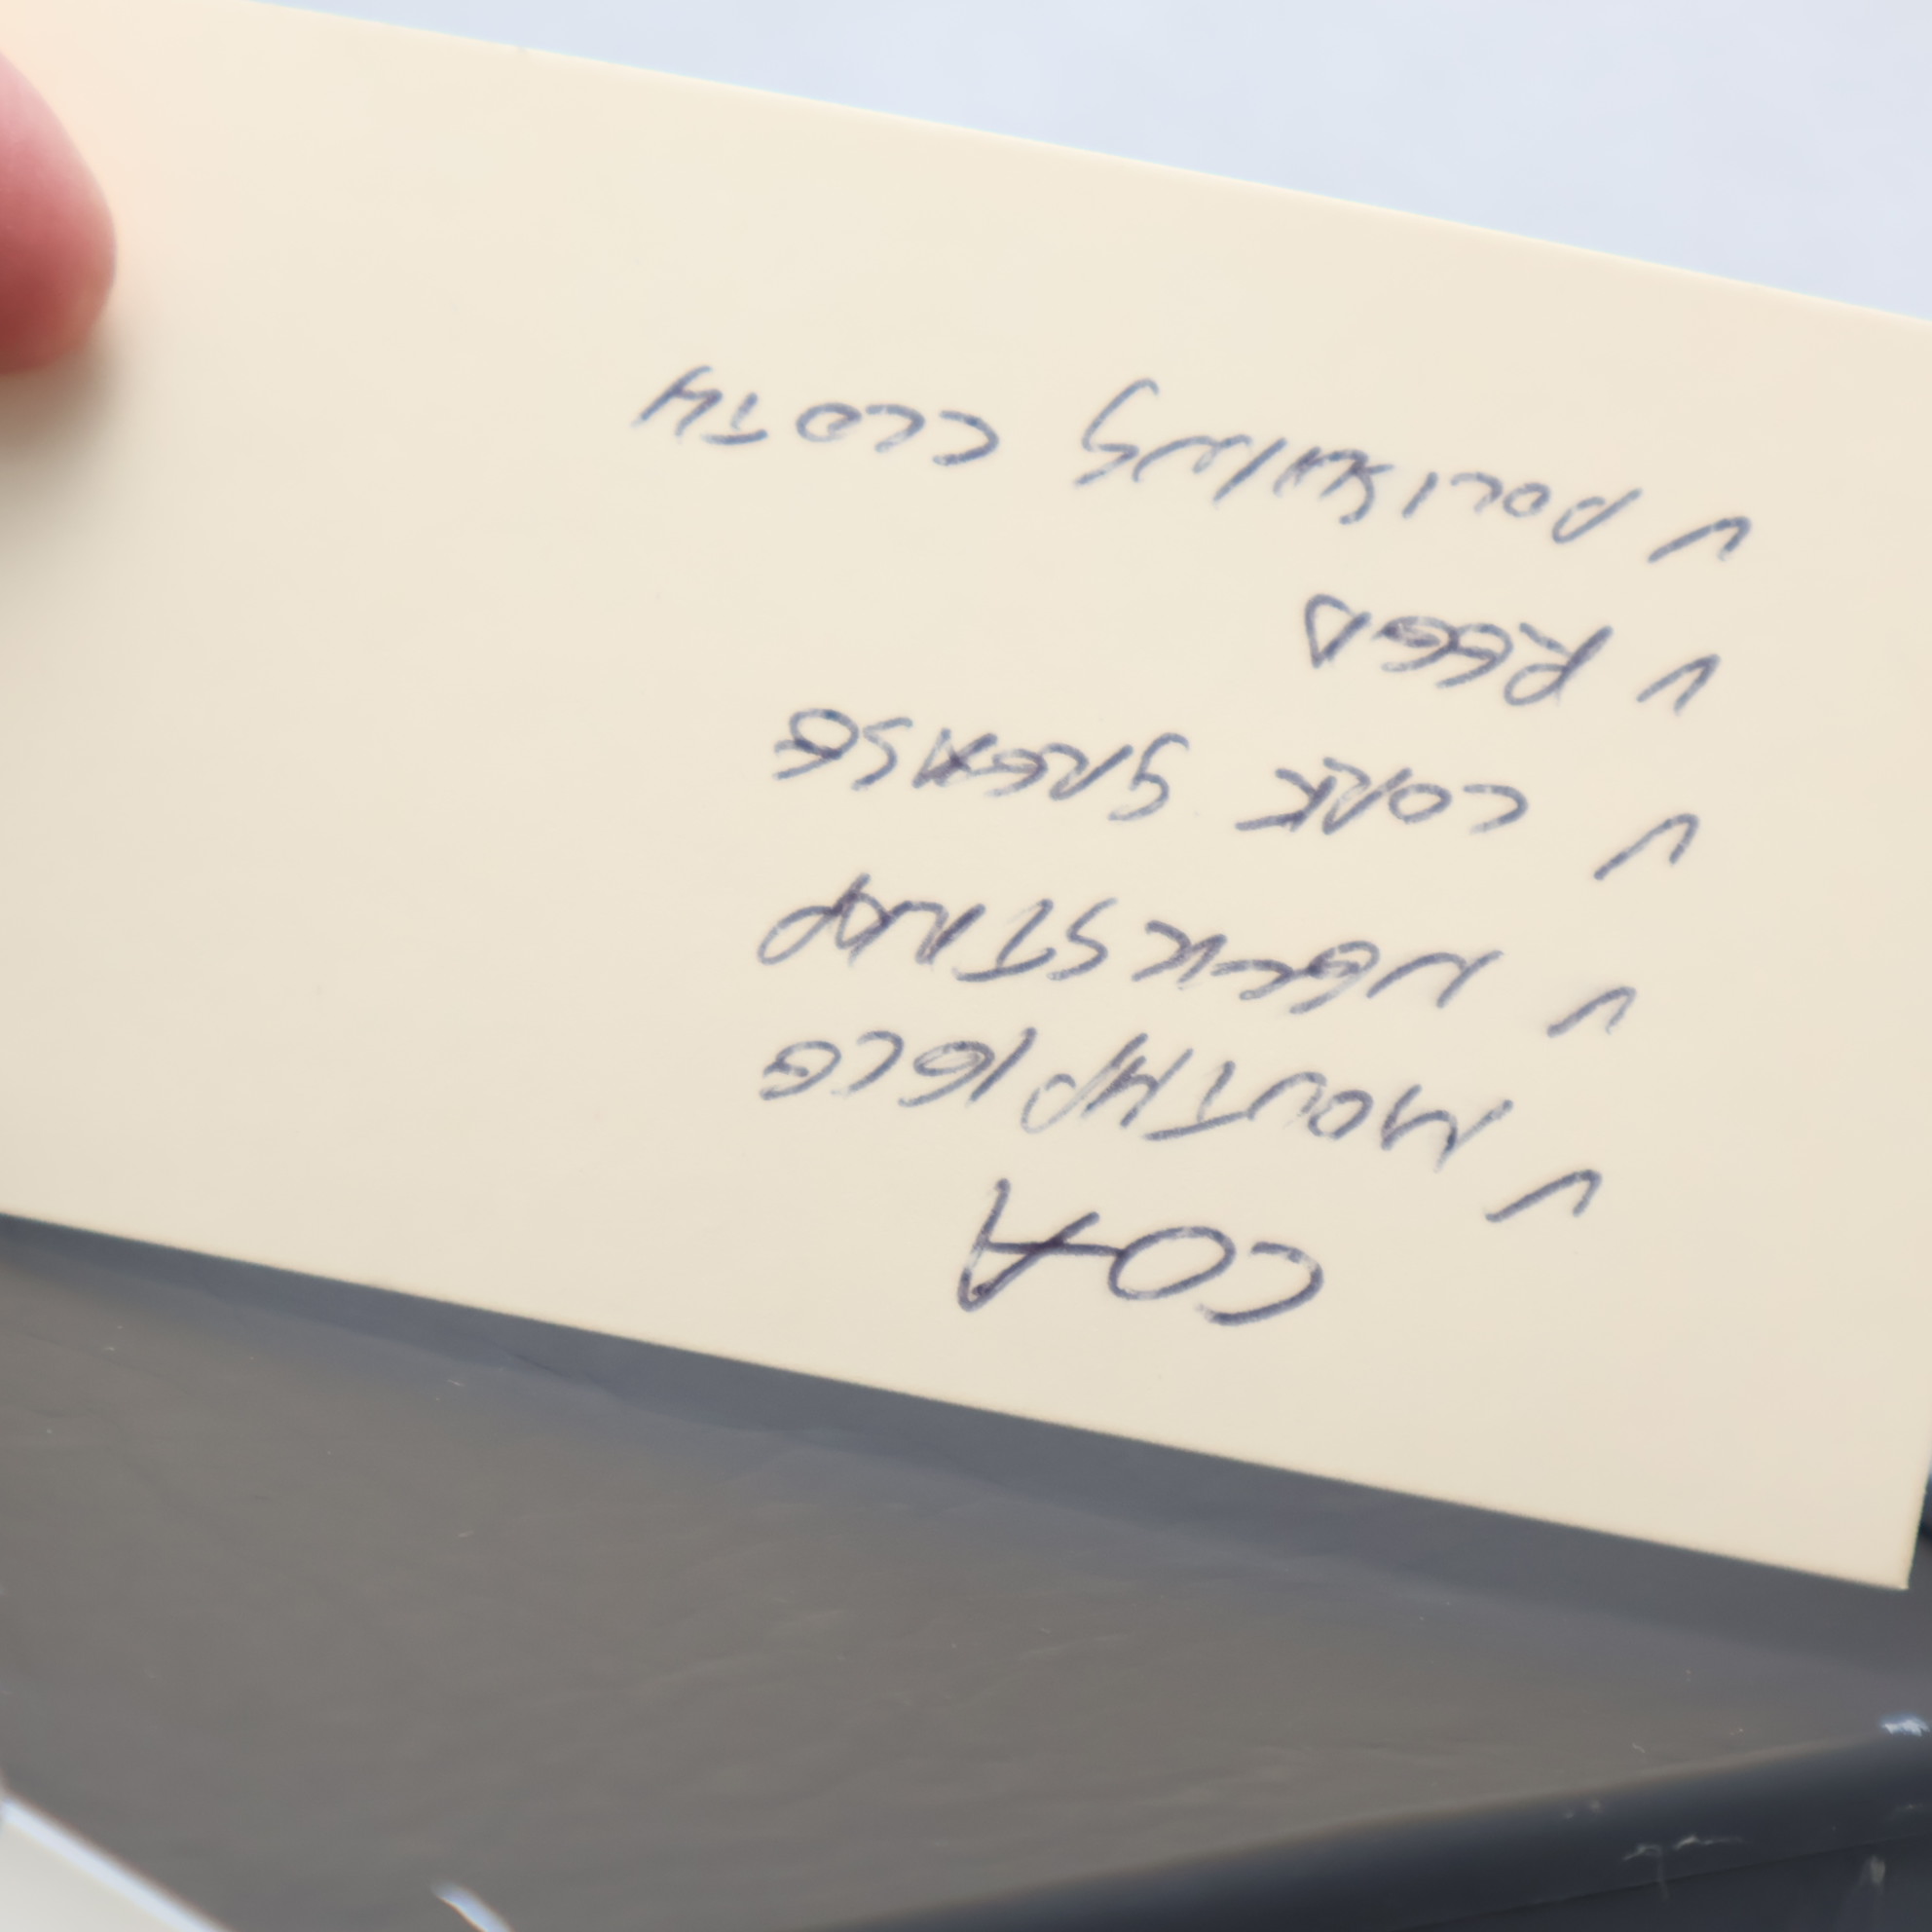 COA
✓ MOUTHPIECE
✓ NECKSTRAP
✓ CORK GREASE
✓ REED
✓ POLISHING CLOTH